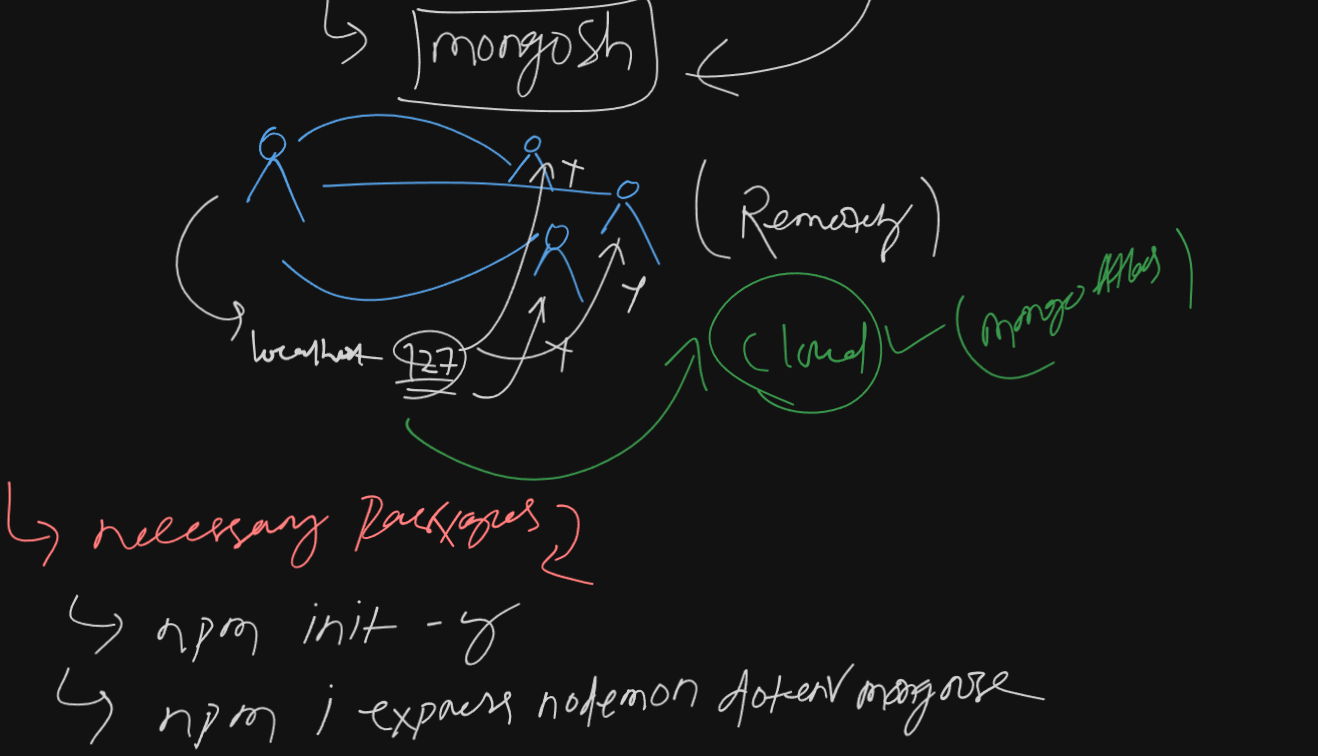 mongosh
(Remotely)
localhost 127
Cloud
(mongo Atlas)
necessary packages
npm init -y
npm i express nodemon dotenv mongoose